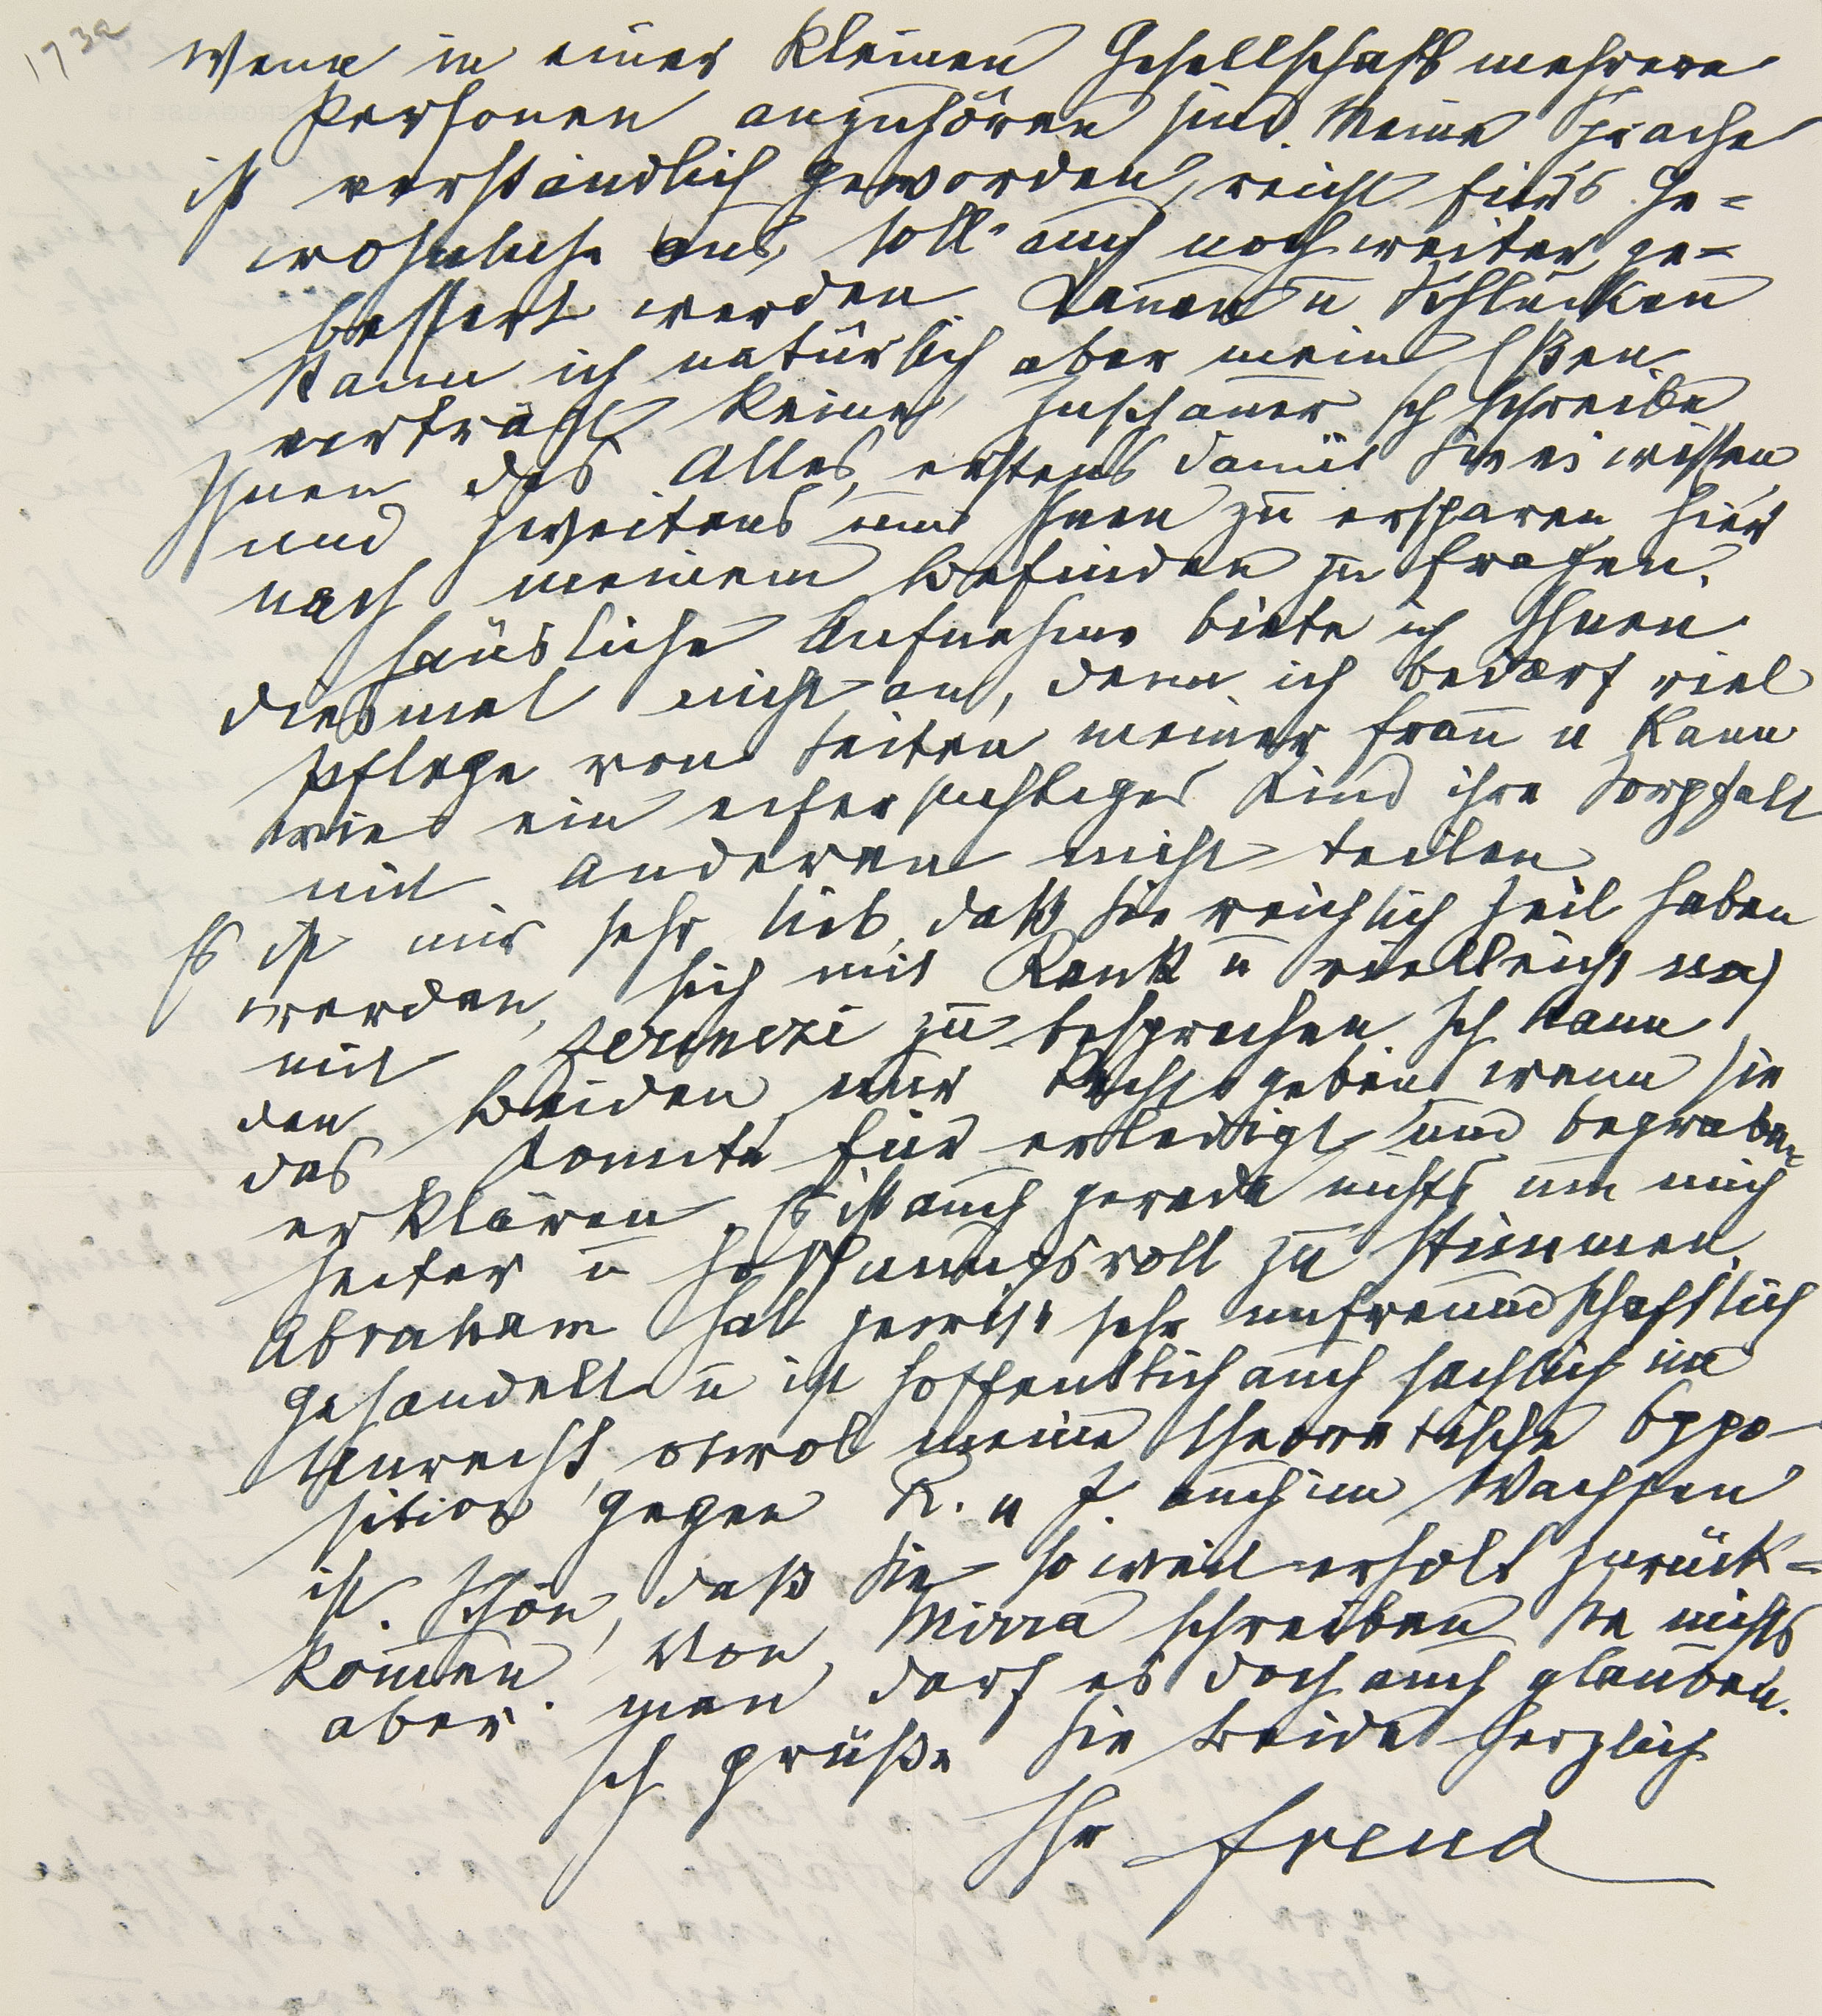 173a
wenn in einer kleinen Gesellschaft mehrere
Personen anzuhören sind. Meine Sprache
ist verständlich geworden, reicht fürs Ge=
wöhnliche aus, soll auch noch weiter ge=
bessert werden. Kauen u Schlucken
kann ich natürlich aber mein Essen
verträgt keine Zuschauer. Ich schreibe
Ihnen das Alles, erstens damit Sie es wissen
und zweitens um Ihnen zu ersparen hier
nach meinem Befinden zu fragen.
Häusliche Aufnahme biete ich Ihnen
diesmal nicht an, denn ich bedarf viel
Pflege von Seiten meiner Frau u kann
wie ein eifersüchtiges Kind ihre Sorgfalt
mit anderen nicht teilen
Es ist mir sehr lieb, daß Sie reichlich Zeit haben
werden, sich mit Rank u vielleicht
mit Ferenczi zu besprechen. Ich kann
den Beiden nur Recht geben wenn sie
das Komite für erledigt und begraben
erklären. Es ist auch gerade nichts um mich
heiter u hoffnungsvoll zu stimmen.
Abraham hat gewiß sehr unfreundschaftlich
gehandelt u ist hoffentlich auch sachlich im
Unrecht, obwol meine theoretische Oppo-
sition gegen R. u F. auch im Wachsen
ist. Schön, daß Sie so weit erholt zurück=
kommen! Von Mirra schreiben Sie nichts
aber man darf es doch auch glauben.
Ich grüße Sie beide herzlich
Ihr Freud